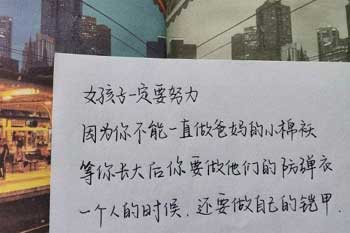 女孩子一定要努力
因为你不能一直做爸妈的小棉袄
等你长大后你要做他们的防弹衣
一个人的时候,还要做自己的铠甲.